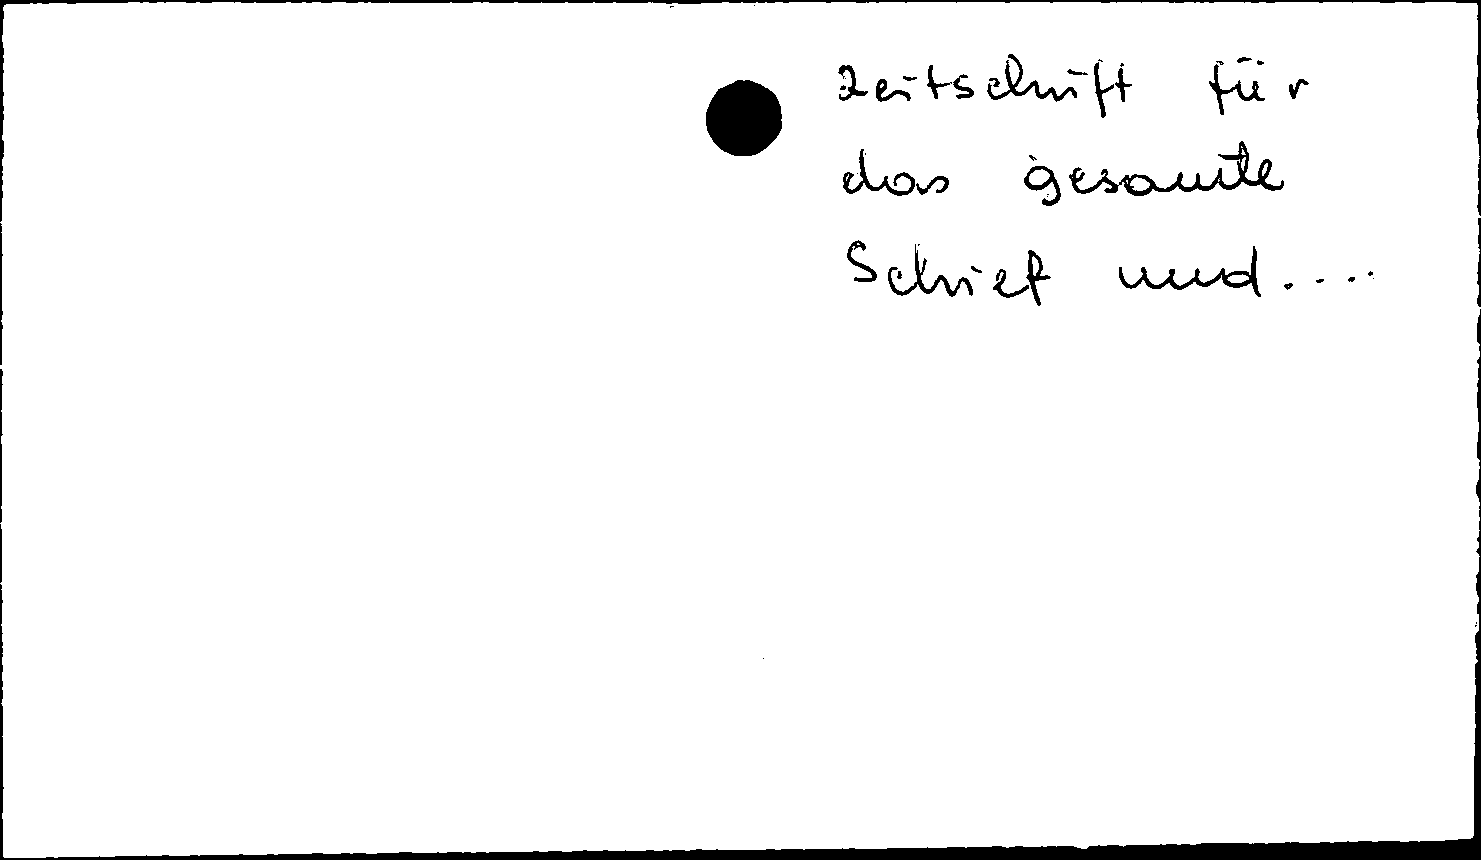 Zeitschrift für
das gesamte
Schief und....